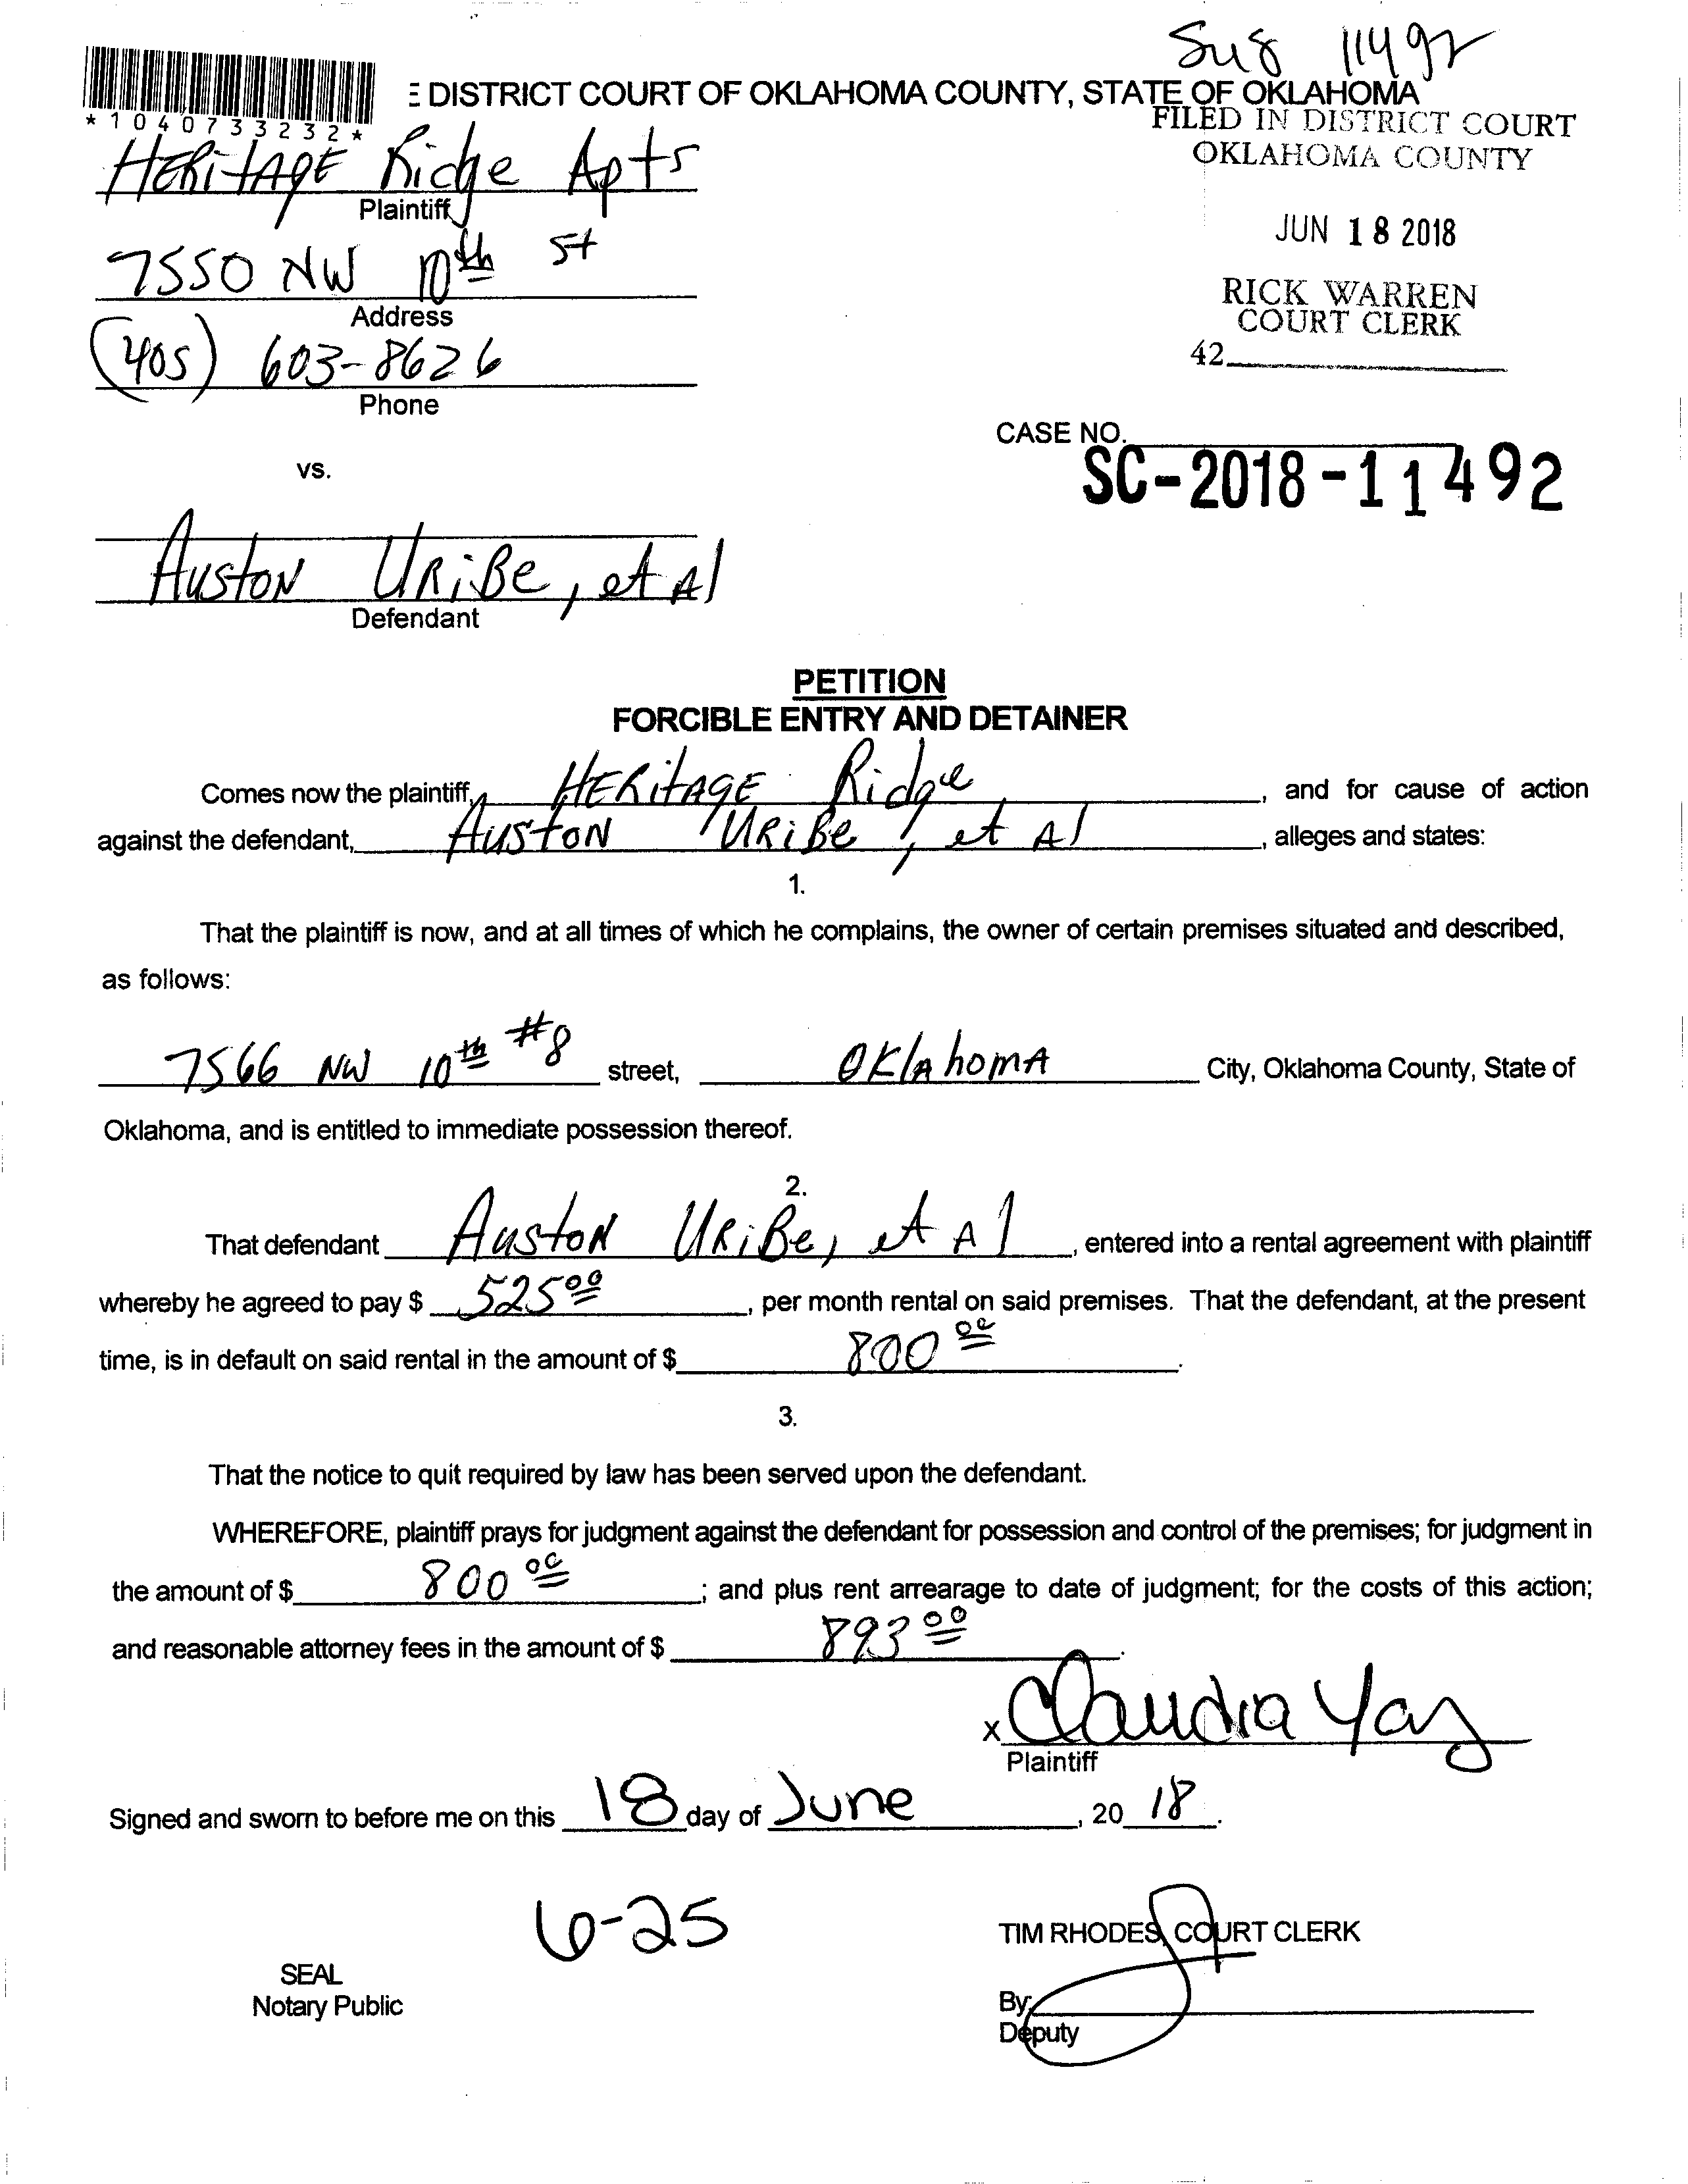 Su8 11492
E DISTRICT COURT OF OKLAHOMA COUNTY, STATE OF OKLAHOMA
*1040733232*
FILED IN DISTRICT COURT
OKLAHOMA COUNTY
HERitAGE Ridge Apts
Plaintiff
JUN 18 2018
7550 NW 10th St
Address
RICK WARREN
COURT CLERK
(405) 603-8626
42
Phone
CASE NO.
SC-2018-11492
vs.
AustoN URiBe, et Al
Defendant
PETITION
FORCIBLE ENTRY AND DETAINER
Comes now the plaintiff, HERitAGE Ridge, and for cause of action
against the defendant, AustoN URiBe, et Al, alleges and states:
1.
That the plaintiff is now, and at all times of which he complains, the owner of certain premises situated and described,
as follows:
7566 NW 10th #8 street, OKlAhomA City, Oklahoma County, State of
Oklahoma, and is entitled to immediate possession thereof.
2.
That defendant AustoN URiBe, et Al, entered into a rental agreement with plaintiff
whereby he agreed to pay $ 525 00, per month rental on said premises. That the defendant, at the present
time, is in default on said rental in the amount of $ 800 00.
3.
That the notice to quit required by law has been served upon the defendant.
WHEREFORE, plaintiff prays for judgment against the defendant for possession and control of the premises; for judgment in
the amount of $ 800 00; and plus rent arrearage to date of judgment; for the costs of this action;
and reasonable attorney fees in the amount of $ 893 00.
x Claudia Yay
Plaintiff
Signed and sworn to before me on this 18 day of June, 20 18.
6-25
TIM RHODES, COURT CLERK
SEAL
Notary Public
By
Deputy